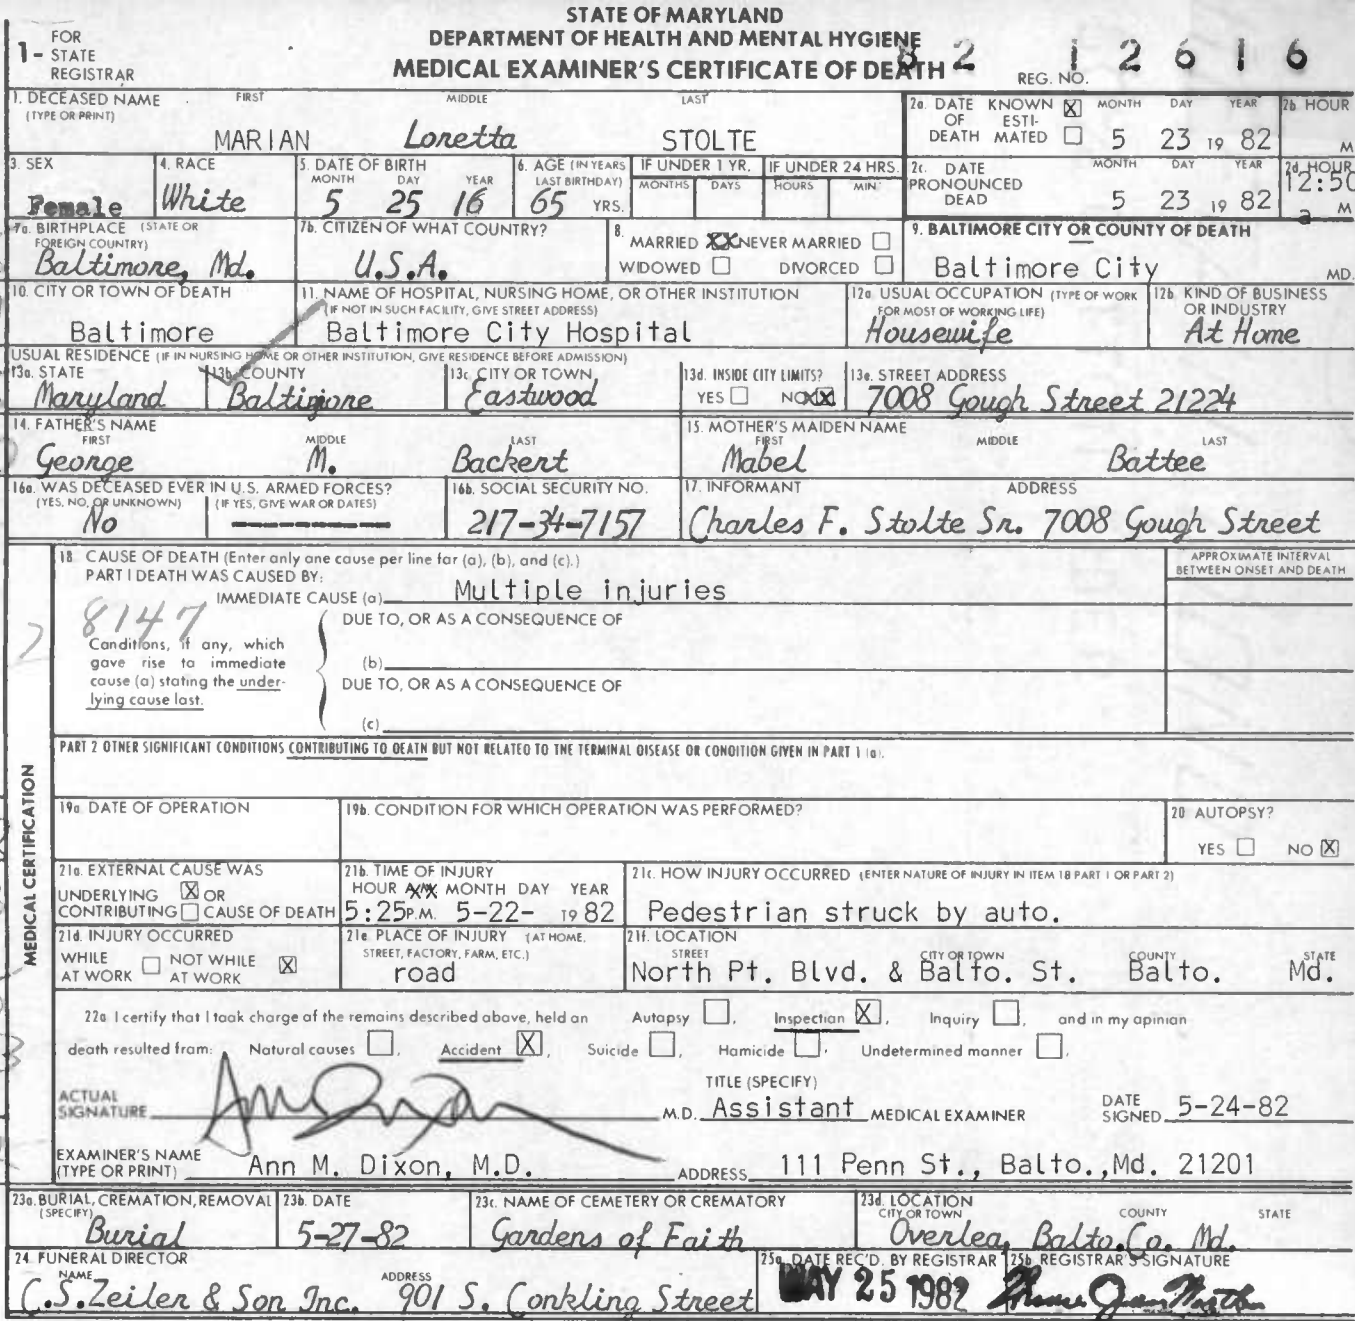 STATE OF MARYLAND
DEPARTMENT OF HEALTH AND MENTAL HYGIENE
MEDICAL EXAMINER'S CERTIFICATE OF DEATH
1- FOR STATE REGISTRAR
REG. NO. 82 12616
1. DECEASED NAME (TYPE OR PRINT) FIRST MIDDLE LAST
MARIAN Loretta STOLTE
2a. DATE OF DEATH KNOWN X ESTIMATED MONTH DAY YEAR 2b HOUR
5 23 19 82 M
3. SEX 4. RACE 5. DATE OF BIRTH MONTH DAY YEAR 6. AGE (IN YEARS LAST BIRTHDAY) IF UNDER 1 YR. MONTHS DAYS IF UNDER 24 HRS. HOURS MIN.
Female White 5 25 16 65 YRS.
2c. DATE PRONOUNCED DEAD MONTH DAY YEAR 2d. HOUR
5 23 19 82 12:50 a M
7a. BIRTHPLACE (STATE OR FOREIGN COUNTRY) 7b. CITIZEN OF WHAT COUNTRY?
Baltimore, Md. U.S.A.
8. MARRIED XX NEVER MARRIED
WIDOWED DIVORCED
9. BALTIMORE CITY OR COUNTY OF DEATH
Baltimore City MD.
10. CITY OR TOWN OF DEATH
Baltimore
11. NAME OF HOSPITAL, NURSING HOME, OR OTHER INSTITUTION
(IF NOT IN SUCH FACILITY, GIVE STREET ADDRESS)
Baltimore City Hospital
12a. USUAL OCCUPATION (TYPE OF WORK FOR MOST OF WORKING LIFE)
Housewife
12b. KIND OF BUSINESS OR INDUSTRY
At Home
USUAL RESIDENCE (IF IN NURSING HOME OR OTHER INSTITUTION, GIVE RESIDENCE BEFORE ADMISSION)
13a. STATE 13b. COUNTY 13c. CITY OR TOWN 13d. INSIDE CITY LIMITS? 13e. STREET ADDRESS
Maryland Baltimore Eastwood YES NO XX 7008 Gough Street 21224
14. FATHER'S NAME FIRST MIDDLE LAST
George M. Backert
15. MOTHER'S MAIDEN NAME FIRST MIDDLE LAST
Mabel Battee
16a. WAS DECEASED EVER IN U.S. ARMED FORCES?
(YES, NO, OR UNKNOWN) (IF YES, GIVE WAR OR DATES)
No ----------
16b. SOCIAL SECURITY NO.
217-34-7157
17. INFORMANT ADDRESS
Charles F. Stolte Sr. 7008 Gough Street
MEDICAL CERTIFICATION
18 CAUSE OF DEATH (Enter only one cause per line for (a), (b), and (c).)
APPROXIMATE INTERVAL BETWEEN ONSET AND DEATH
PART I DEATH WAS CAUSED BY:
IMMEDIATE CAUSE (a) Multiple injuries
8147
DUE TO, OR AS A CONSEQUENCE OF
Conditions, if any, which gave rise to immediate cause (a) stating the underlying cause last.
(b)
DUE TO, OR AS A CONSEQUENCE OF
(c)
PART 2 OTHER SIGNIFICANT CONDITIONS CONTRIBUTING TO DEATH BUT NOT RELATED TO THE TERMINAL DISEASE OR CONDITION GIVEN IN PART 1 (a).
19a. DATE OF OPERATION 19b. CONDITION FOR WHICH OPERATION WAS PERFORMED? 20 AUTOPSY?
YES NO X
21a. EXTERNAL CAUSE WAS
UNDERLYING X OR
CONTRIBUTING CAUSE OF DEATH
21b. TIME OF INJURY
HOUR MONTH DAY YEAR
5:25 P.M. 5-22- 19 82
21c. HOW INJURY OCCURRED (ENTER NATURE OF INJURY IN ITEM 18 PART 1 OR PART 2)
Pedestrian struck by auto.
21d. INJURY OCCURRED
WHILE AT WORK NOT WHILE AT WORK X
21e PLACE OF INJURY (AT HOME, STREET, FACTORY, FARM, ETC.)
road
21f. LOCATION
STREET CITY OR TOWN COUNTY STATE
North Pt. Blvd. & Balto. St. Balto. Md.
22a I certify that I took charge of the remains described above, held an Autopsy , Inspection X, Inquiry , and in my opinion
death resulted from: Natural causes , Accident X, Suicide , Homicide , Undetermined manner .
ACTUAL SIGNATURE M.D.
TITLE (SPECIFY)
Assistant MEDICAL EXAMINER
DATE SIGNED 5-24-82
EXAMINER'S NAME (TYPE OR PRINT) Ann M. Dixon, M.D. ADDRESS 111 Penn St., Balto., Md. 21201
23a. BURIAL, CREMATION, REMOVAL (SPECIFY) 23b. DATE 23c. NAME OF CEMETERY OR CREMATORY 23d. LOCATION CITY OR TOWN COUNTY STATE
Burial 5-27-82 Gardens of Faith Overlea, Balto. Co. Md.
24. FUNERAL DIRECTOR
NAME ADDRESS
C.S. Zeiler & Son Inc. 901 S. Conkling Street
25a. DATE REC'D. BY REGISTRAR
MAY 25 1982
25b. REGISTRAR'S SIGNATURE